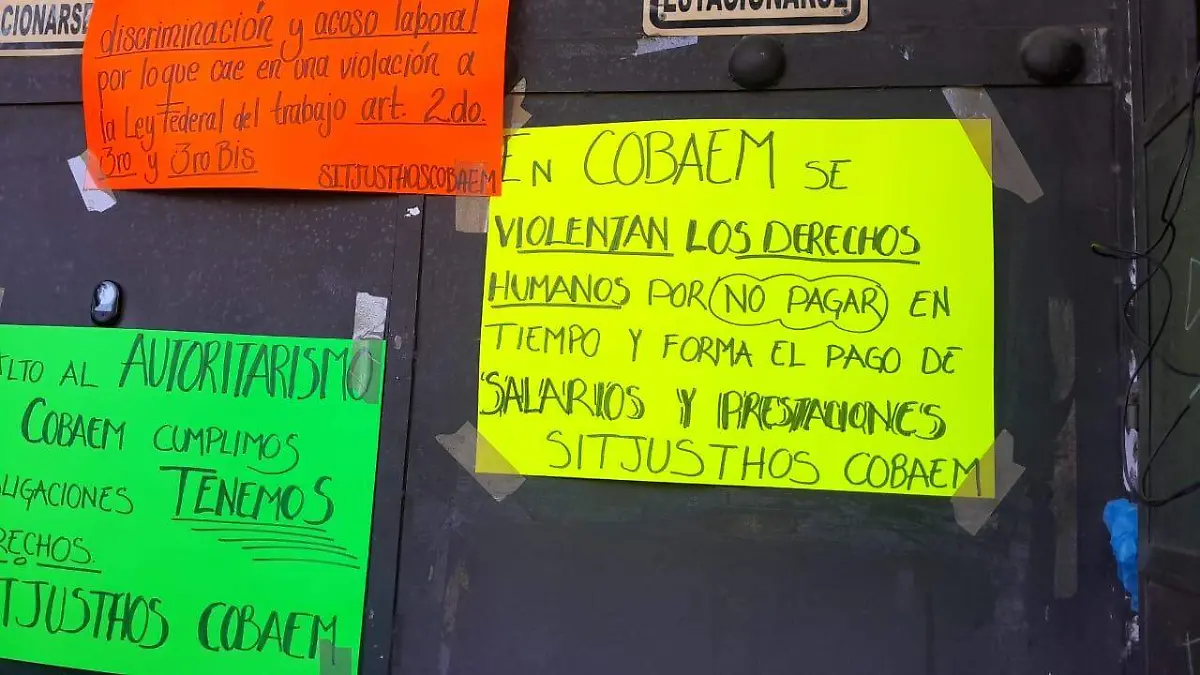 CIONARSE
ESTACIONARSE
discriminación y acoso laboral
por lo que cae en una violación a
la Ley Federal del trabajo art. 2do.
3ro y 3ro Bis
SITJUSTHOSCOBAEM
EN COBAEM SE
VIOLENTAN LOS DERECHOS
HUMANOS POR NO PAGAR EN
TIEMPO Y FORMA EL PAGO DE
SALARIOS Y PRESTACIONES
SITJUSTHOS COBAEM
ALTO AL AUTORITARISMO
COBAEM CUMPLIMOS
LIGACIONES TENEMOS
RECHOS.
TJUSTHOS COBAEM